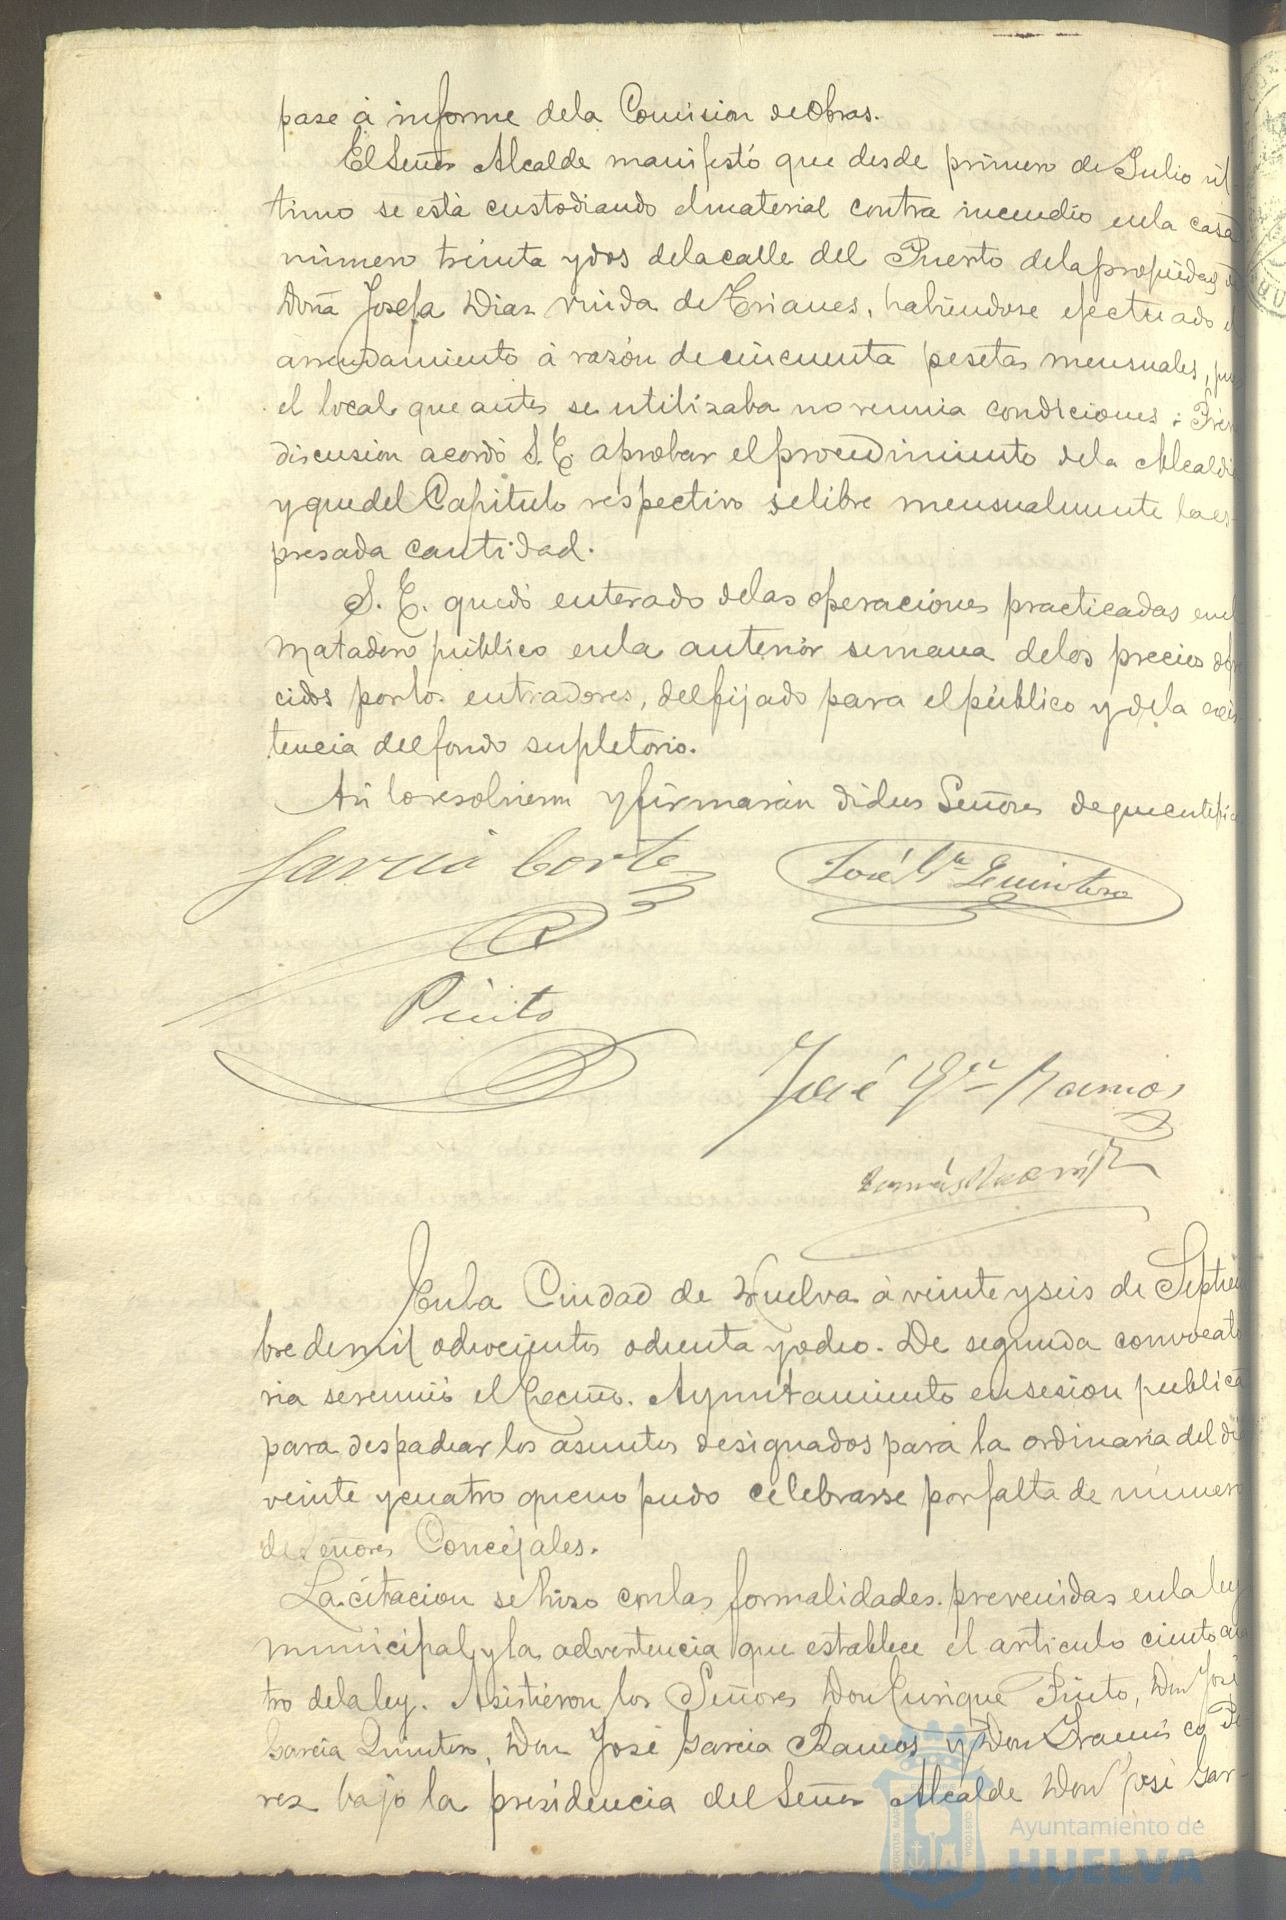 pase á informe dela Comision deobras.
El Señor Alcalde manifestó que desde primero de Julio úl-
timo se está custodiando elmaterial contra incendio enla casa
número treinta ydos delacalle del Puerto delapropiedad de
Doña Josefa Diaz viuda de Trianes, habiéndose efectuado el
arrendamiento á razón decincuenta pesetas mensuales, pues
el local que antes seutilizaba no reunia condiciones;
discusion acordó S. E. aprobar elprocedimiento dela Alcaldia
yquedel Capitulo respectivo selibre mensualmente laes-
presada cantidad.
S. E. quedó enterado delas operaciones practicadas enel
matadero público enla anterior semana delos precios
cidos porlos entradores, delfijado para elpúblico ydela exis
tencia delfondo supletorio.
Asi loresolvieron yfirmarán dichos Señores dequecertifico
Garcia Cortes
José Gª Quintero
Pinto
José Gª Ramos
Enla Ciudad de Huelva á veinte yseis de Septiem
bre demil ochocientos ochenta yocho. De segunda convocato
ria sereunió el Excmo. Ayuntamiento ensesion publica
para despachar los asuntos designados para la ordinaria del dia
veinte ycuatro queno pudo celebrarse porfalta de número
deSeñores Concejales.
Lacitacion sehizo conlas formalidades prevenidas enlaley
municipal yla advertencia que establece el articulo cientocua
tro delaley. Asistieron los Señores Don Enrique Pinto, Don José
Garcia Quintero, Don José Garcia Ramos y Don Francisco Pe-
rez bajo la presidencia del Señor Alcalde Don José Gar-
Ayuntamiento de
HUELVA